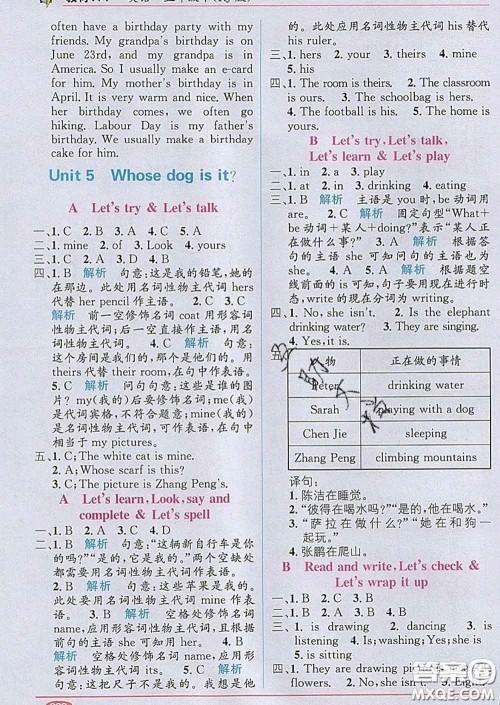 often have a birthday party with my
friends. My grandpa's birthday is on
June 23rd, and my grandpa is in
America. So I usually make an e-card
for him. My mother's birthday is in
April. It is very warm and nice. When
her birthday comes, we often go
hiking. Labour Day is my father's
birthday. We usually make a birthday
cake for him.
Unit 5 Whose dog is it?
A Let's try & Let's talk
一、1. C 2. B 3. A 4. C 5. A
二、1. mine 2. of 3. Look 4. yours
四、1. B 解析 句意:这是我的铅笔,她的
在那边。此处用名词性物主代词 hers
代替 her pencil 作主语。 2. C 3. C
解析 前一空修饰名词 coat 用形容
词性物主代词;后一空直接作主语,用名
词性物主代词。 4. B 解析 句意:
这个房间是我们的,那个是他们的。用
theirs 代替 their room,在句中作表语。
5. C 解析 问句句意:这些是谁的图
片? my(我的)后要修饰名词;me(我)是
代词宾格,不符合题意;mine(我的)
是名词性物主代词,可作表语,在句
中相当于 my pictures.
五、1. C;The white cat is mine.
2. A;Whose scarf is this?
3. C;The picture is Zhang Peng's.
A Let's learn, Look, say and
complete & Let's spell
一、1. B 2. A 3. C 4. D
三、1. B 解析 句意:“这辆新自行车是你
的吗?”“是的,它是我的。”两个空缺处
都需要用名词性物主代词作表语。
2. A 解析 此处用名词性物主代词
mine 作表语。 3. B 解析 空格处
修饰名词 name,应用形容词性物主代
词,且根据首句可知应用 his。 4. B
解析 空格处修饰名词
name,应用形容词性物主代词 its。 5. B
解析 这把尺子不是我的。我想是他
的。此处应用名词性物主代词 his 替代
his ruler.
三、1. his 2. hers 3. its 4. mine
5. his
四、1. The room is theirs. 2. The classroom
is ours. 3. The schoolbag is hers.
4. The football is his. 5. The home is
yours.
B Let's try, Let's talk,
Let's learn & Let's play
一、1. in 2. a 3. i 4. a
二、1. at 2. is 3. drinking 4. eating
三、1. B 解析 主语是 you 时,be 动词用
are。 2. B 解析 固定句型“What+
be 动词+某人+doing?”表示“某人正
在做什么事?” 3. B 解析 根据答
句的主语 she 可知问句的主语也为
she。 4. A 5. A 解析 根据题空
线前面的 is 可知,句子要用进行时态,
write 的现在分词为 writing。
四、1. No, she isn't. 2. Is the elephant
drinking water? 3. They are singing.
4. Yes, it is.
五、
物 正在做的事情
Peter drinking water
Sarah playing with a dog
Chen Jie sleeping
Zhang Peng climbing mountains
译句:
1. 陈洁在睡觉。
2. “彼得在喝水吗?”“是的,他在喝水。”
3. “萨拉在做什么?”“她在和狗一
起玩。”
4. 张鹏在爬山。
B Read and write, Let's check &
Let's wrap it up
一、1. B 2. A 3. A 4. B 5. B
二、1. drawing 2. dancing 3. is
listening 4. Is;washing;Yes;she is
5. is sitting
三、1. They are drawing pictures
flowers. 3. No, it isn't. 5. Eight.
答案圈
MXQE.COM